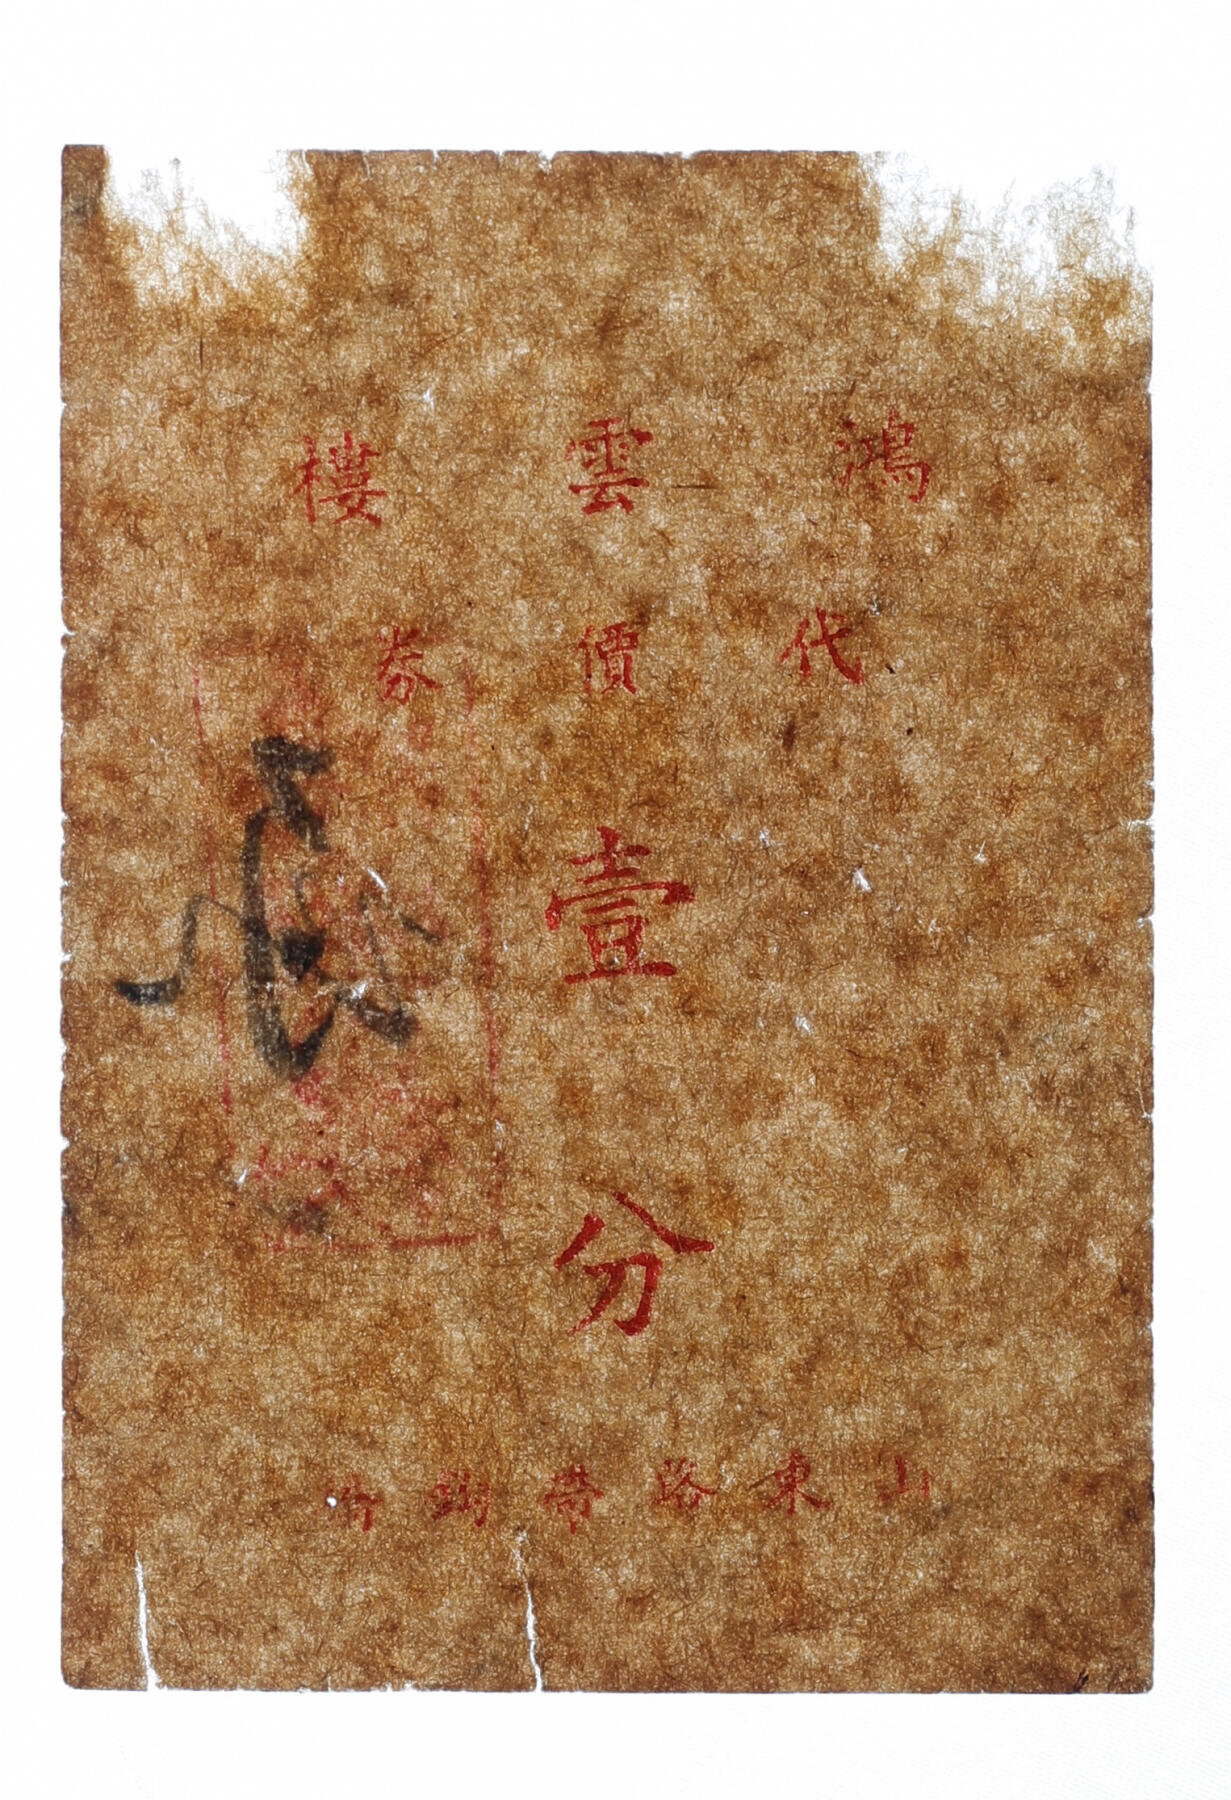 鴻雲樓
代價券
壹
分
山東路帶鈎